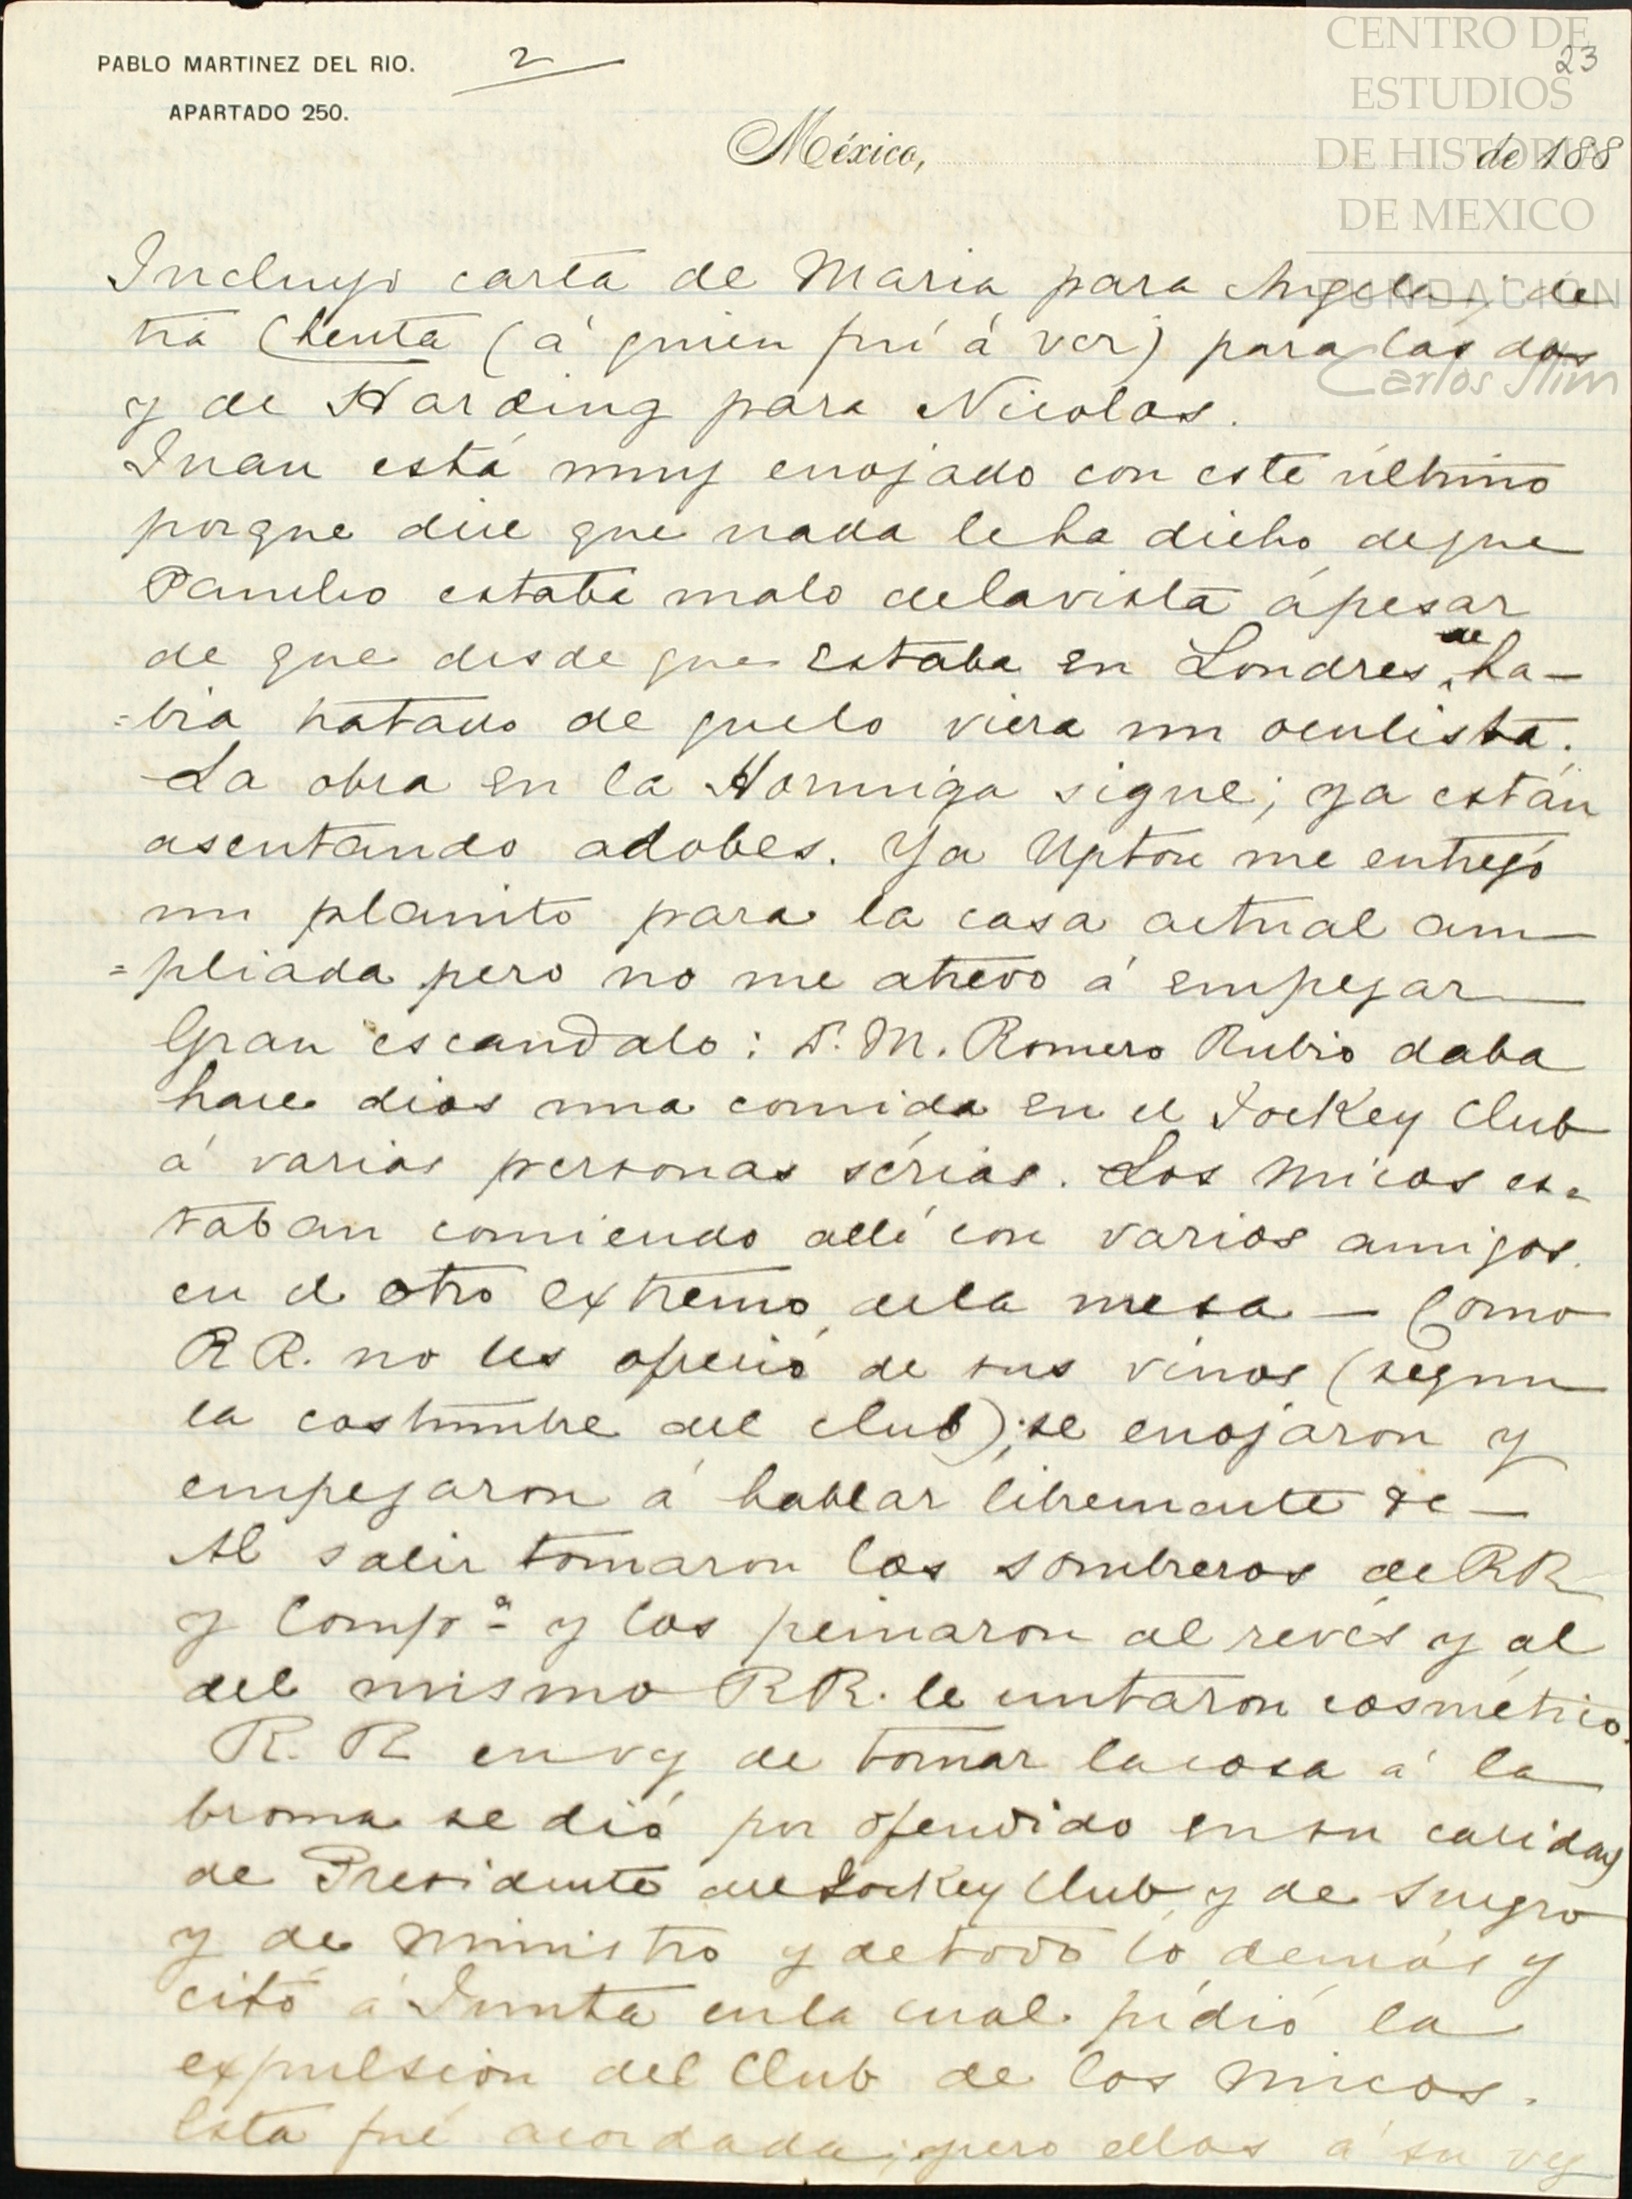 PABLO MARTINEZ DEL RIO.
APARTADO 250.
2
23
México, de 188
CENTRO DE
ESTUDIOS
DE HISTORIA
DE MEXICO
FUNDACIÓN
Carlos Slim
Incluyo carta de Maria para Angela, de
tia Chenta (á quien fuí á ver) para las dos
y de Harding para Nicolas.
Juan está muy enojado con este último
porque dice que nada le ha dicho de que
Pancho estaba malo de la vista ápesar
de que desde que estaba en Londres de ha-
=bia tratado de que lo viera un oculista.
La obra en la Hormiga sigue; ya están
asentando adobes. Ya Upton me entregó
un planito para la casa actual am-
=pliada pero no me atrevo á empezar
Gran escandalo: D. M. Romero Rubio daba
hace dias una comida en el Jockey Club
á varias personas sérias. Los Micos es=
taban comiendo allí con varios amigos.
en el otro extremo de la mesa — Como
RR. no les ofreció de sus vinos (segun
la costumbre del club); se enojaron y
empezaron á hablar libremente &c —
Al salir tomaron los sombreros de RR
y Comp.ª y los peinaron al revés y al
del mismo RR. le untaron cosmético.
R. R en vez de tomar la cosa á la
broma se dió por ofendido en su calidad
de Presidente del Jockey Club y de Suegro
y de Ministro y de todo lo demás y
citó á Junta en la cual pidió la
expulsion del Club de los Micos.
Esta fué acordada; pero ellos á su vez